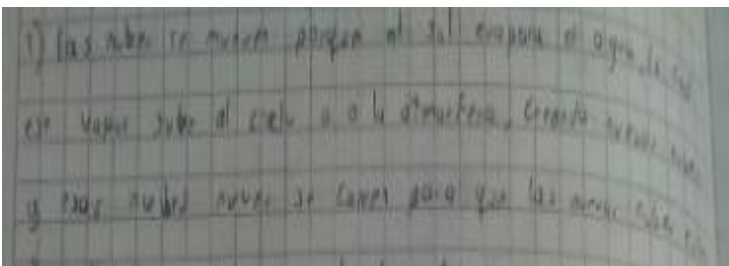 1) las nubes se mueven porque el sol evapora el agua, la
ese vapor sube al cielo o a la atmosfera, creando nuevas
y esas nubes nuevas se corren para que las nuevas nubes